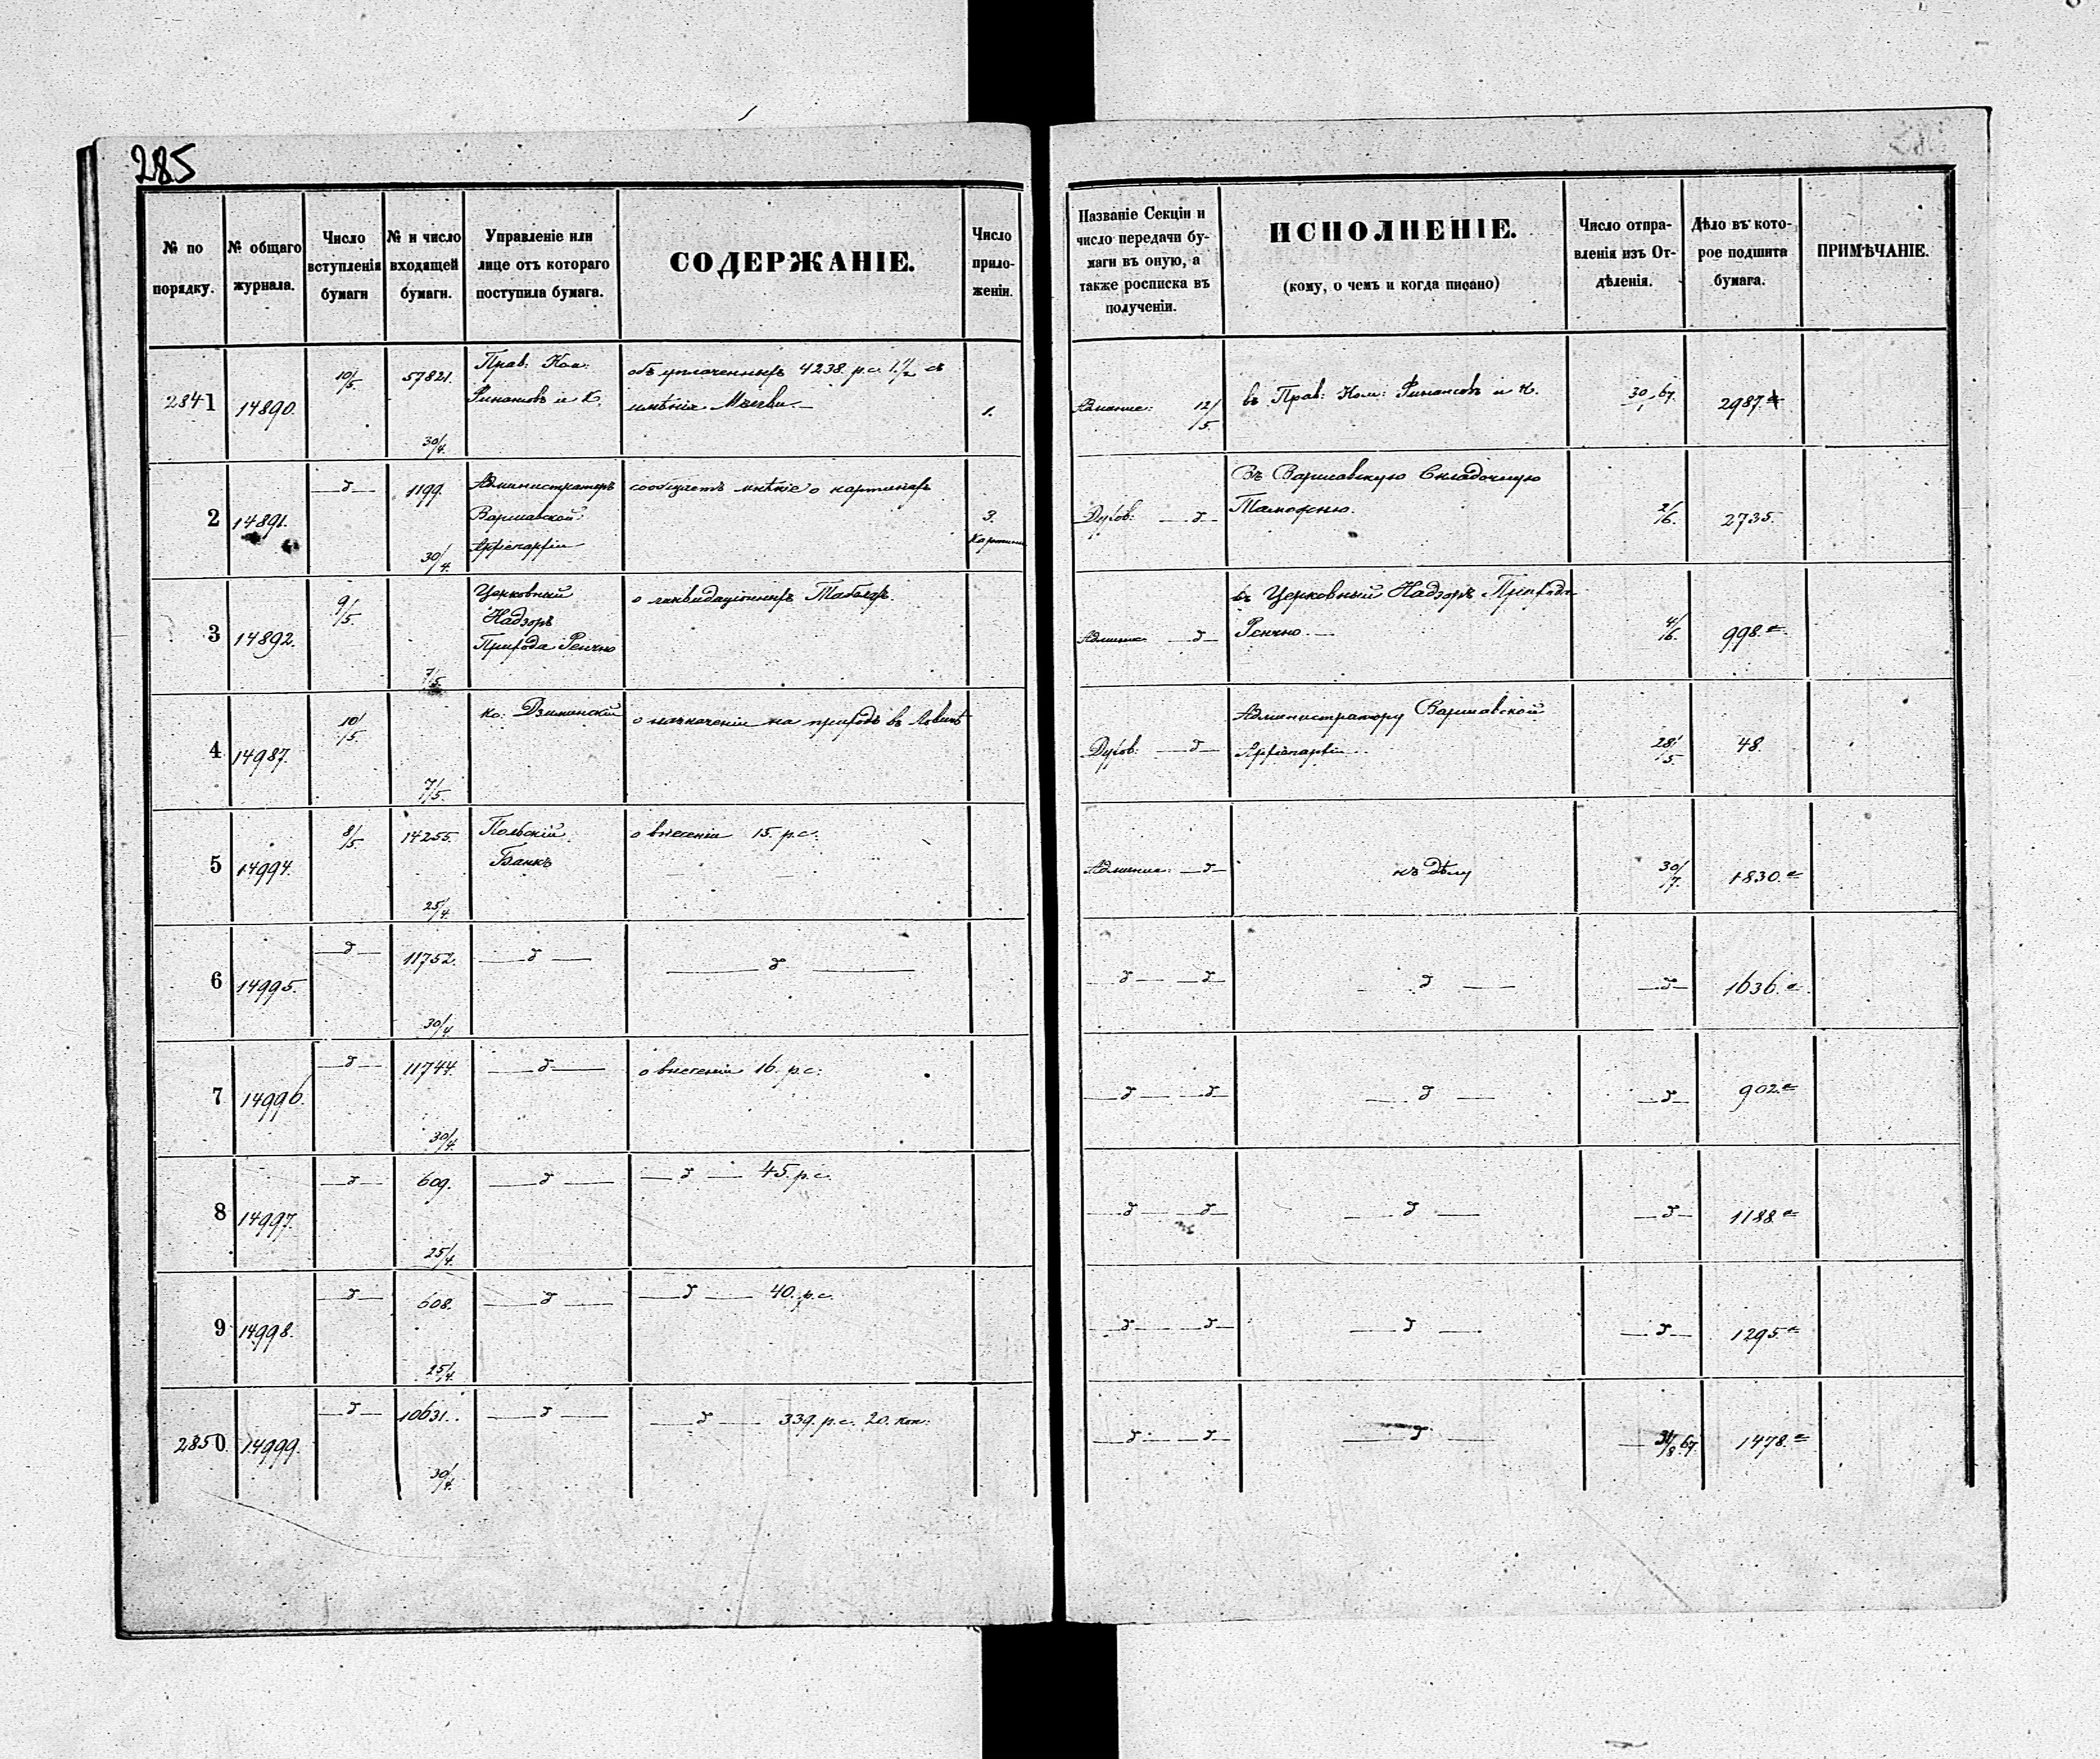 285
№ по порядку.
№ общаго журнала.
Число вступленія бумаги
№ и число входящей бумаги.
Управленіе или лице отъ котораго поступила бумага.
СОДЕРЖАНІЕ.
Число приложеніи.
Названіе Секціи и число передачи бумаги въ оную, а также росписка въ полученіи.
ИСПОЛНЕНІЕ.
(кому, о чемъ и когда писано)
Число отправленія изъ Отдѣленія.
Дѣло въ которое подшита бумага.
ПРИМѢЧАНІЕ.
2841 14890. 10/5 57821. 30/4. Прав: Ком: Финансовъ и К. 4238. р.с. имѣнія 1. 12/5. въ Прав: Ком: Финансовъ и К. 2987.
2 14891. —д— 1199. 30/4. Администраторъ Варшавской: Архіепархіи сообщаетъ мнѣніе о картинахъ 3. Картины Духов: —д— Въ Варшавскую Складочную Таможню. 2/6. 2735.
3 14892. 9/5. 7/5. Церковный Надзоръ Прихода Ренчно о ликвидаціонныхъ Табеляхъ. Админис —д— въ Церковный Надзоръ Прихода Ренчно.— 4/6. 998.
4 14987. 10/5. 7/5. о назначеніи на приходъ въ Духов: —д— Администратору Варшавской Архіепархіи. 28/5. 48.
5 14994. 8/5. 14255. 25/4. Польскій Банкъ о внесеніи 15. р.с. Админис: —д— къ дѣлу 30/7. 1830.
6 14995. —д— 11752. 30/4 —д— —д— —д— —д— —д— —д— 1636.
7 14996. —д— 11744. 30/4. —д— о внесеніи 16. р.с. —д— —д— —д— —д— 902.
8 14997. —д— 609. 25/4. —д— —д— 45. р.с. —д— —д— —д— —д— 1188.
9 14998. —д— 608. 25/4. —д— —д— 40. р.с. —д— —д— —д— —д— 1295.
2850. 14999. —д— 10631. 30/4. —д— —д— 339. р.с. 20. коп. —д— —д— —д— 1478.